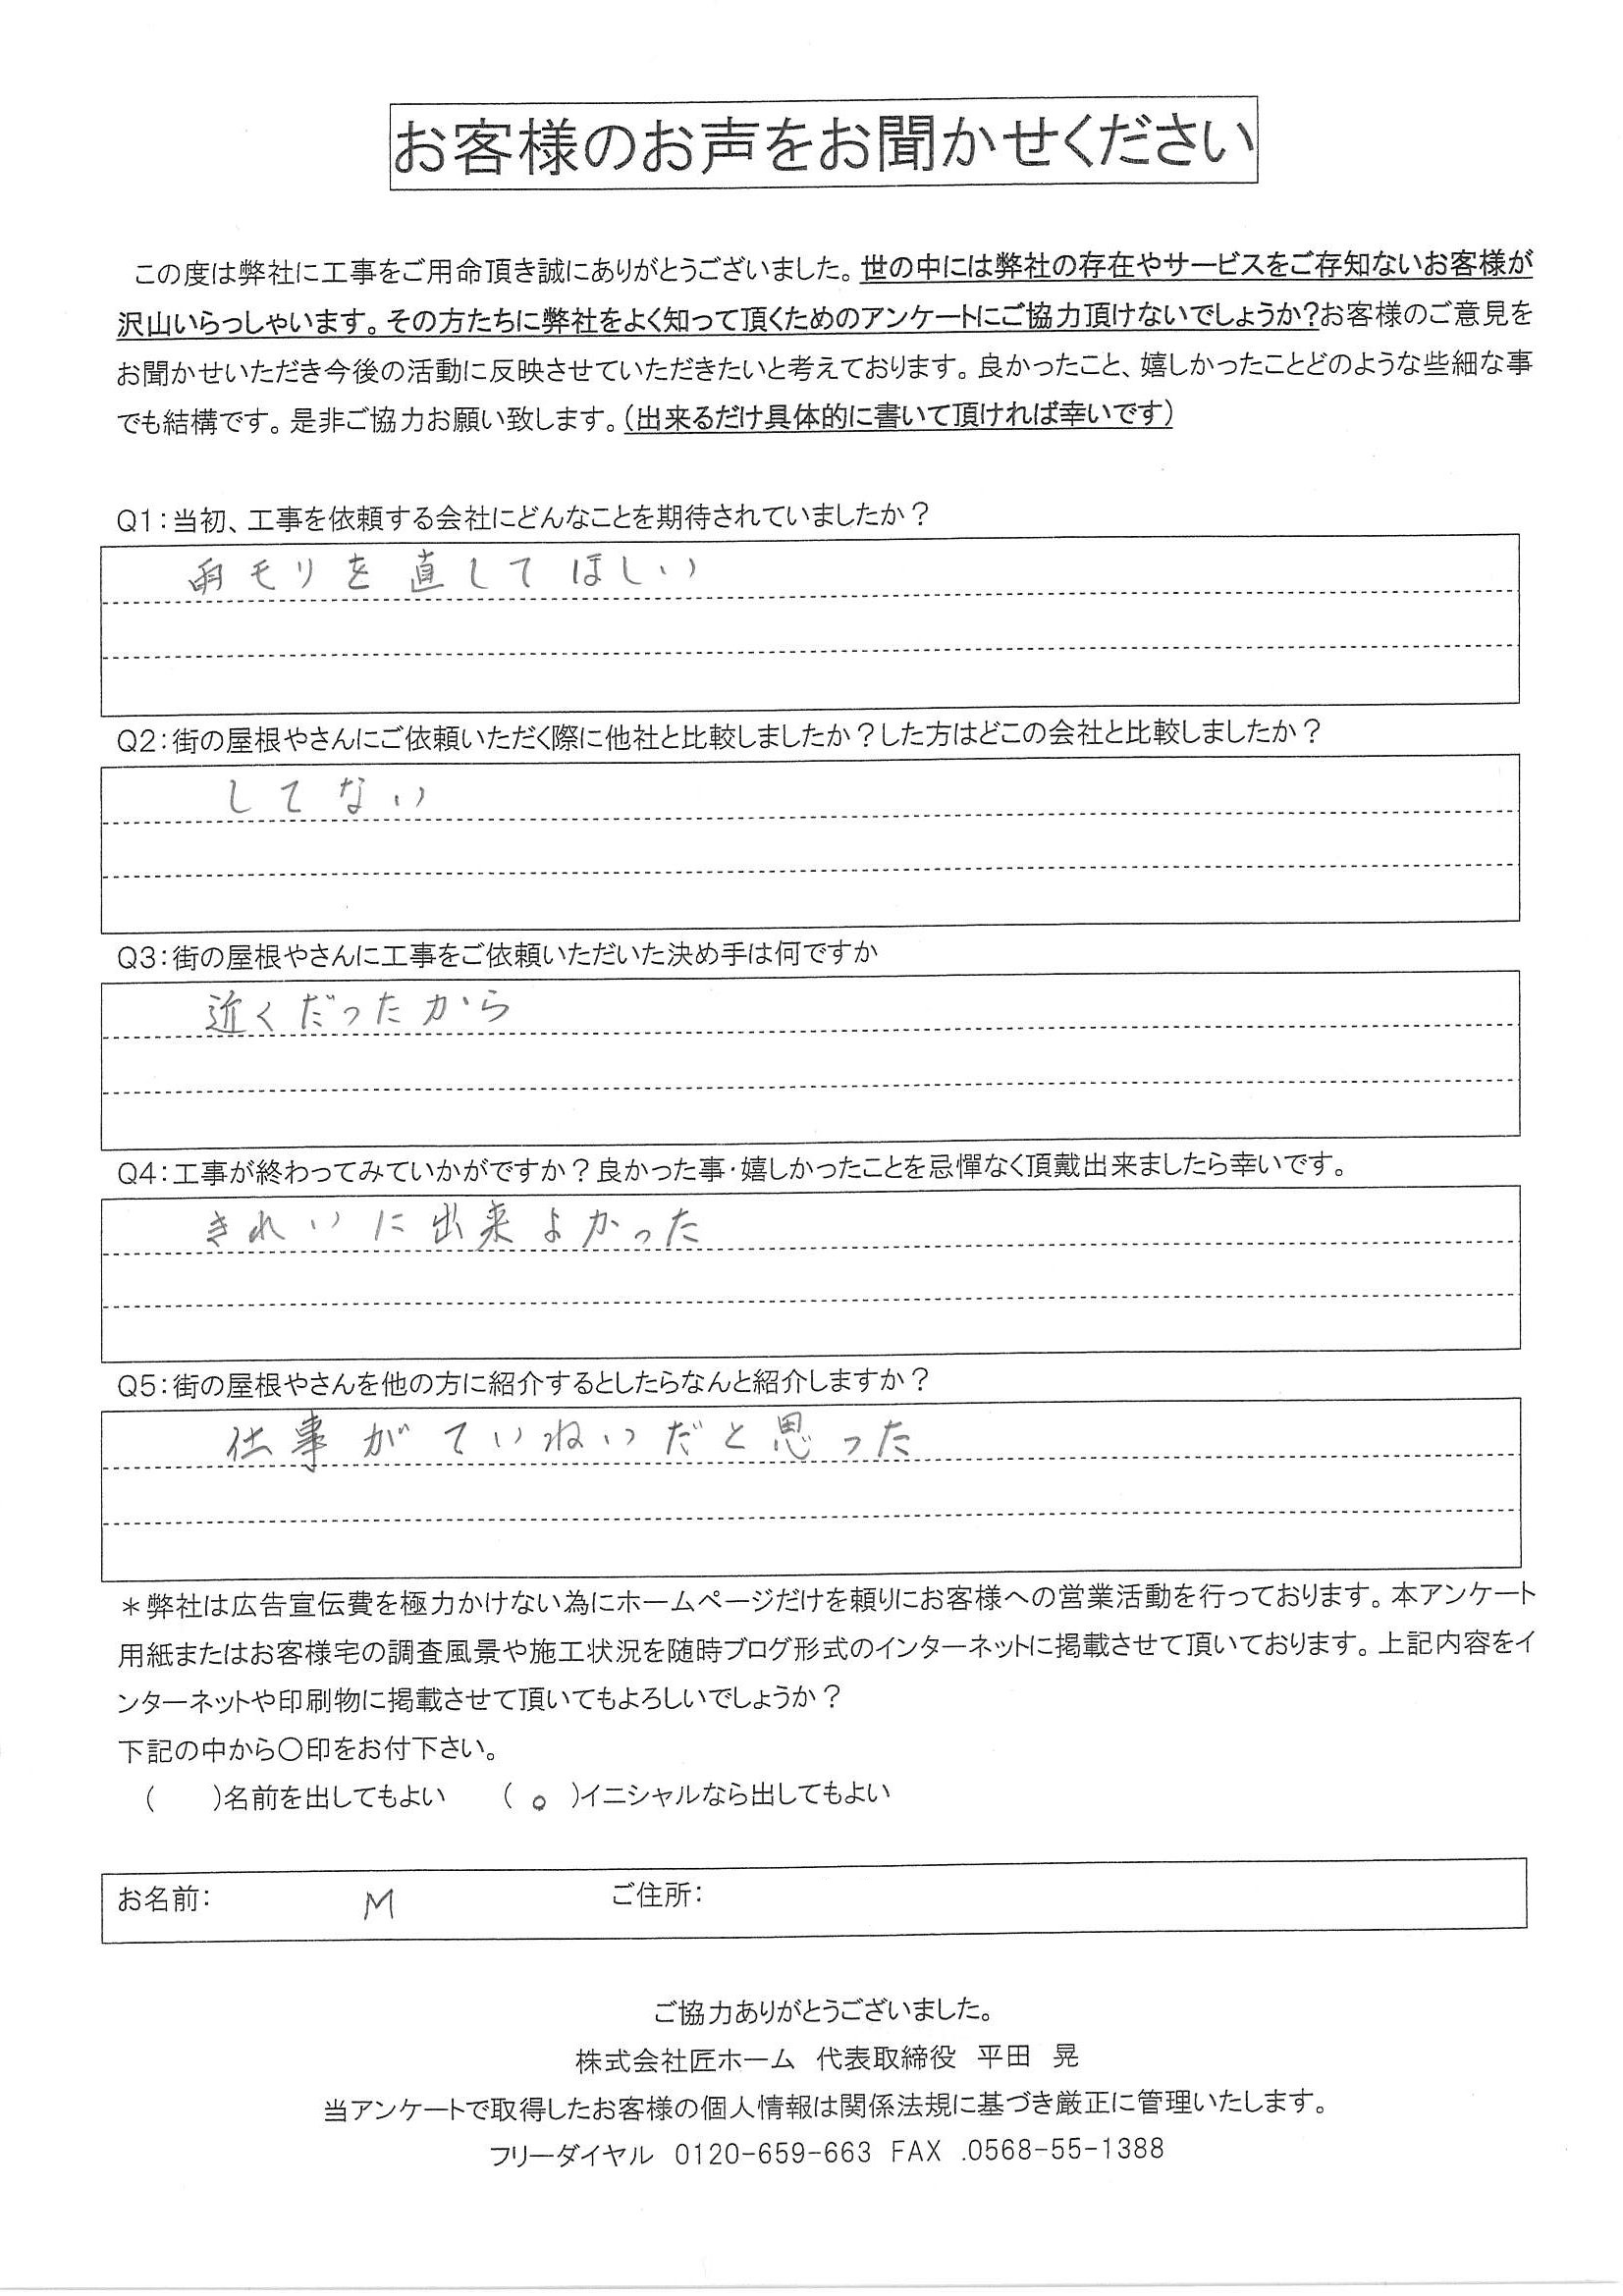 お客様のお声をお聞かせください
この度は弊社に工事をご用命頂き誠にありがとうございました。世の中には弊社の存在やサービスをご存知ないお客様が
沢山いらっしゃいます。その方たちに弊社をよく知って頂くためのアンケートにご協力頂けないでしょうか?お客様のご意見を
お聞かせいただき今後の活動に反映させていただきたいと考えております。良かったこと、嬉しかったことどのような些細な事
でも結構です。是非ご協力お願い致します。(出来るだけ具体的に書いて頂ければ幸いです)
Q1:当初、工事を依頼する会社にどんなことを期待されていましたか?
雨モリを直してほしい
Q2:街の屋根やさんにご依頼いただく際に他社と比較しましたか?した方はどこの会社と比較しましたか?
してない
Q3:街の屋根やさんに工事をご依頼いただいた決め手は何ですか
近くだったから
Q4:工事が終わってみていかがですか?良かった事・嬉しかったことを忌憚なく頂戴出来ましたら幸いです。
きれいに出来よかった
Q5:街の屋根やさんを他の方に紹介するとしたらなんと紹介しますか?
仕事がていねいだと思った
*弊社は広告宣伝費を極力かけない為にホームページだけを頼りにお客様への営業活動を行っております。本アンケート
用紙またはお客様宅の調査風景や施工状況を随時ブログ形式のインターネットに掲載させて頂いております。上記内容をイ
ンターネットや印刷物に掲載させて頂いてもよろしいでしょうか?
下記の中から○印をお付下さい。
( )名前を出してもよい (○)イニシャルなら出してもよい
お名前: M ご住所:
ご協力ありがとうございました。
株式会社匠ホーム 代表取締役 平田 晃
当アンケートで取得したお客様の個人情報は関係法規に基づき厳正に管理いたします。
フリーダイヤル 0120-659-663 FAX .0568-55-1388